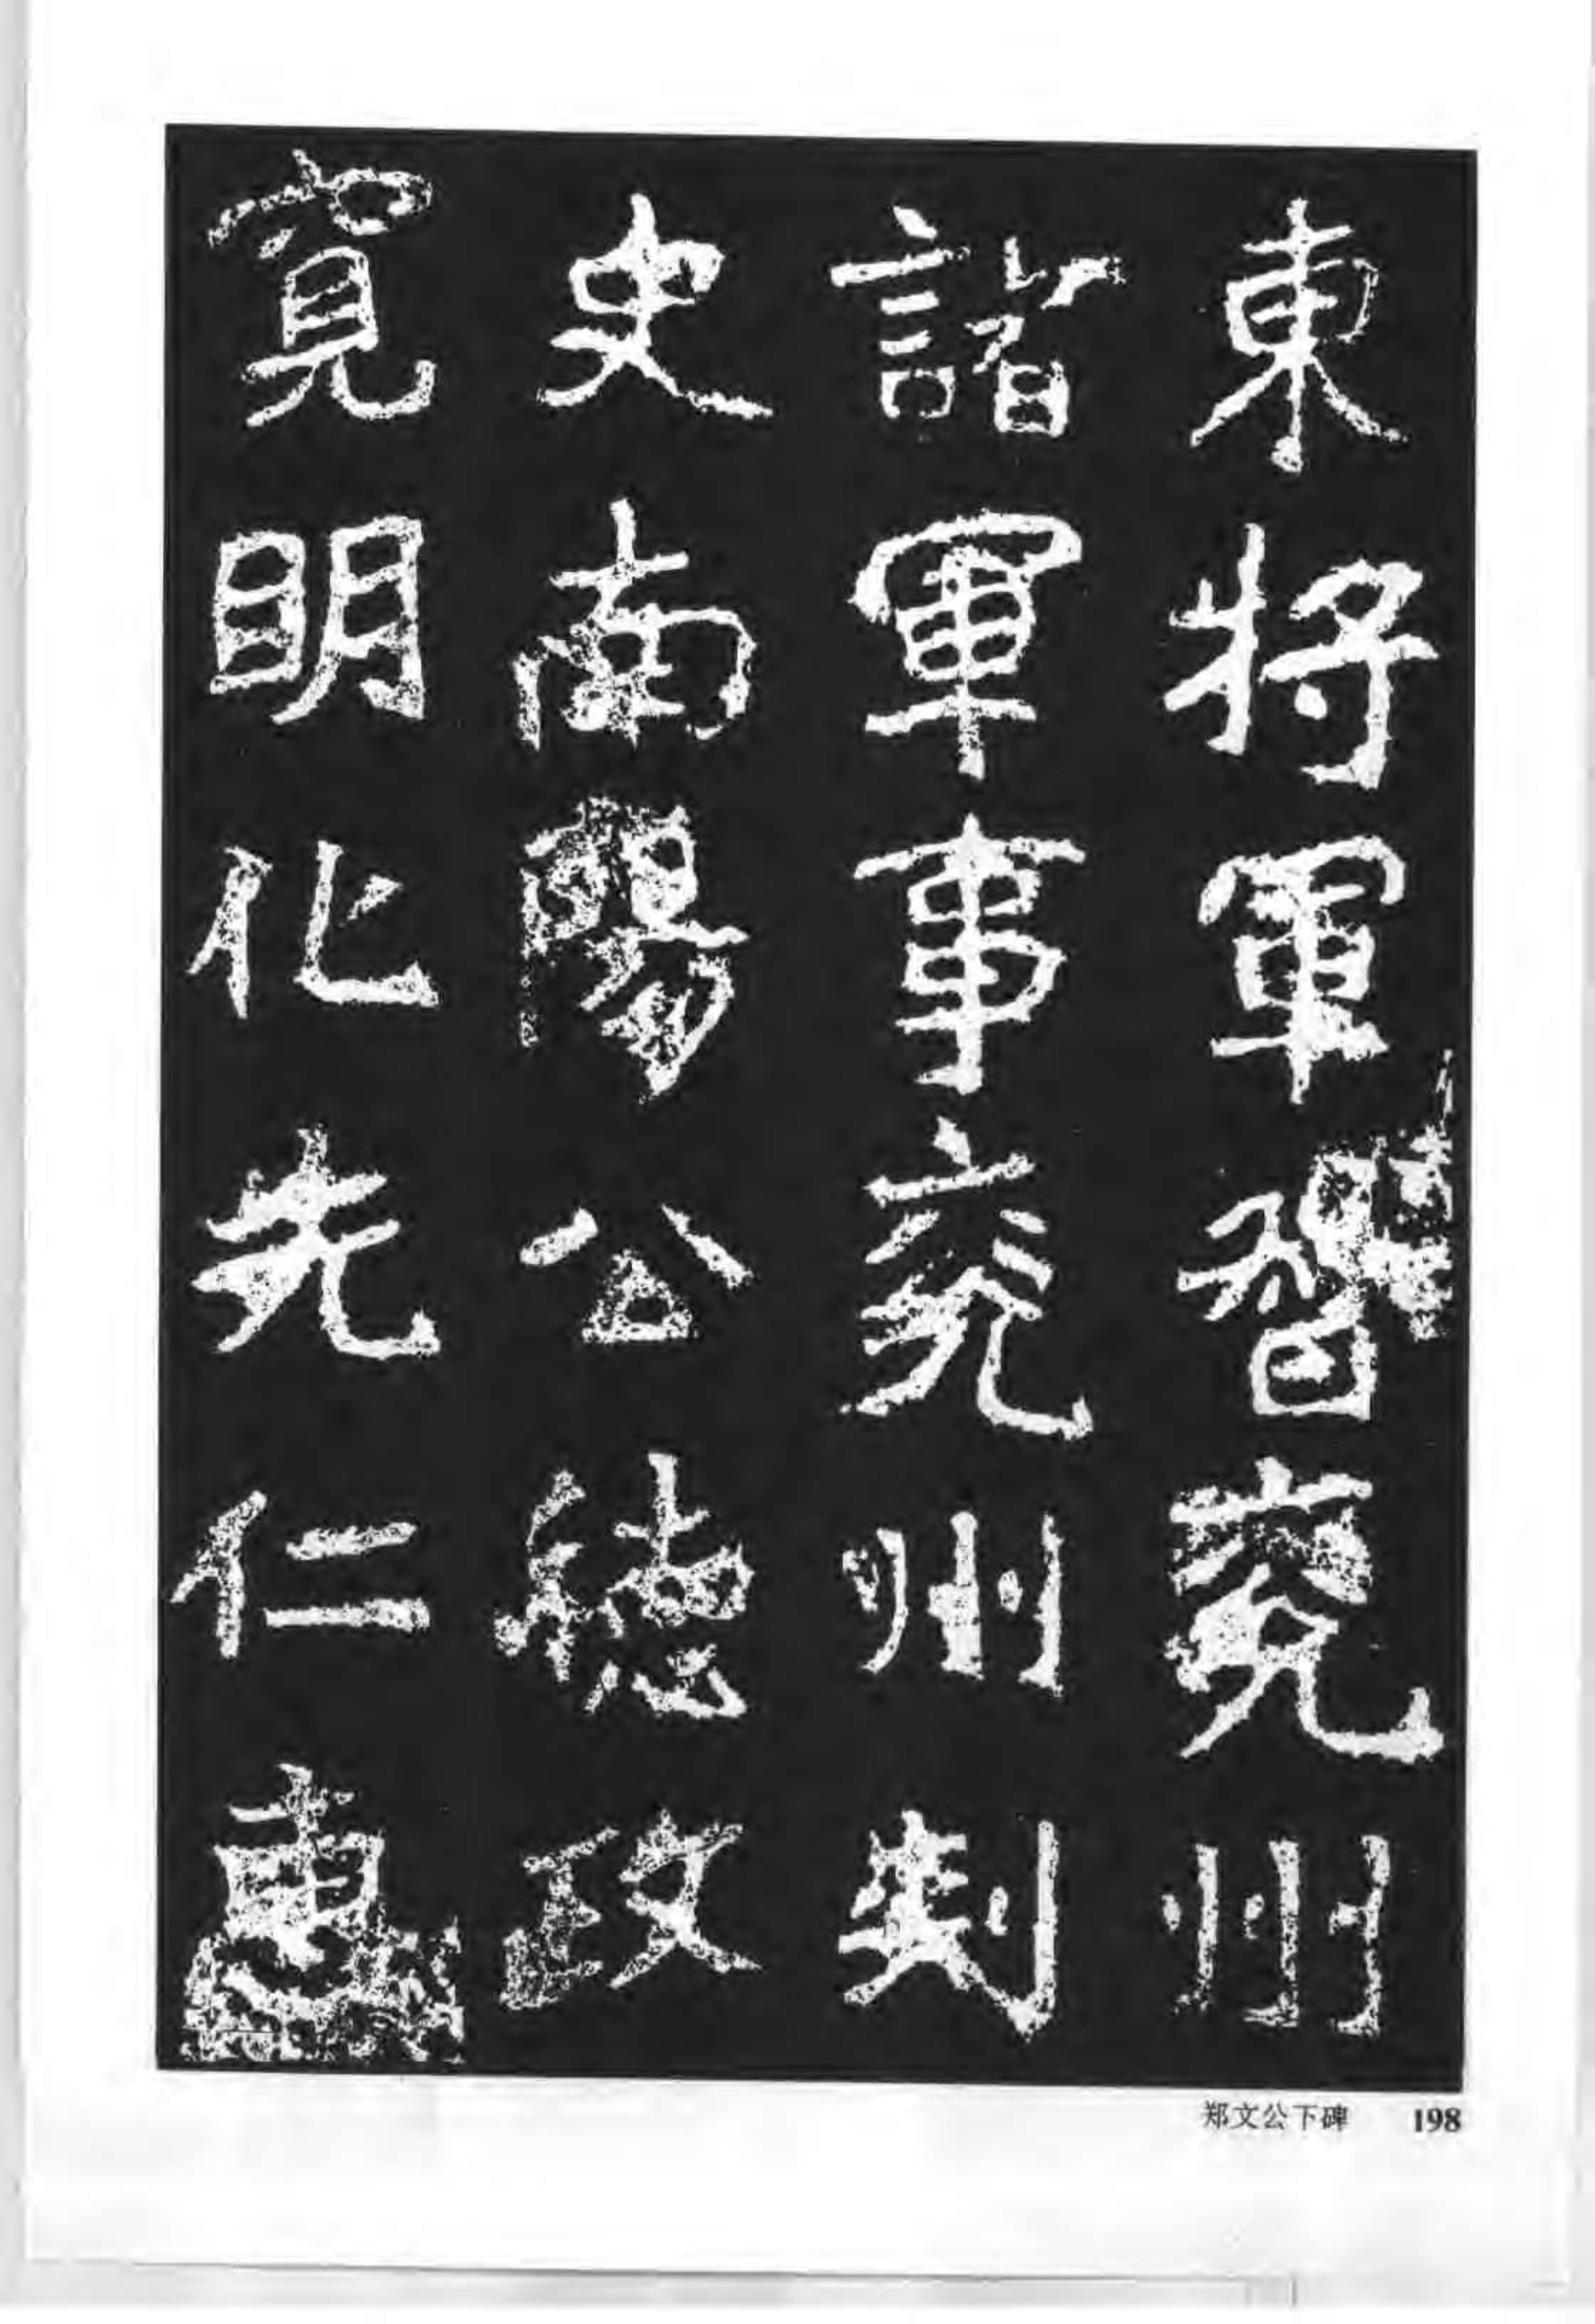 東將軍督兖州
諸軍事兖州刺
史南陽公德政
寬明化先仁惠
郑文公下碑 198